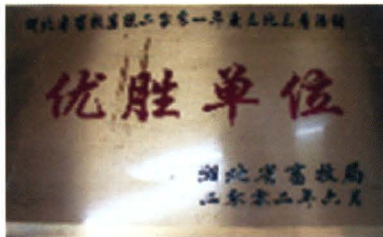 湖北省畜牧系统二零零一年度
优胜单位
湖北省畜牧局
二零零二年六月